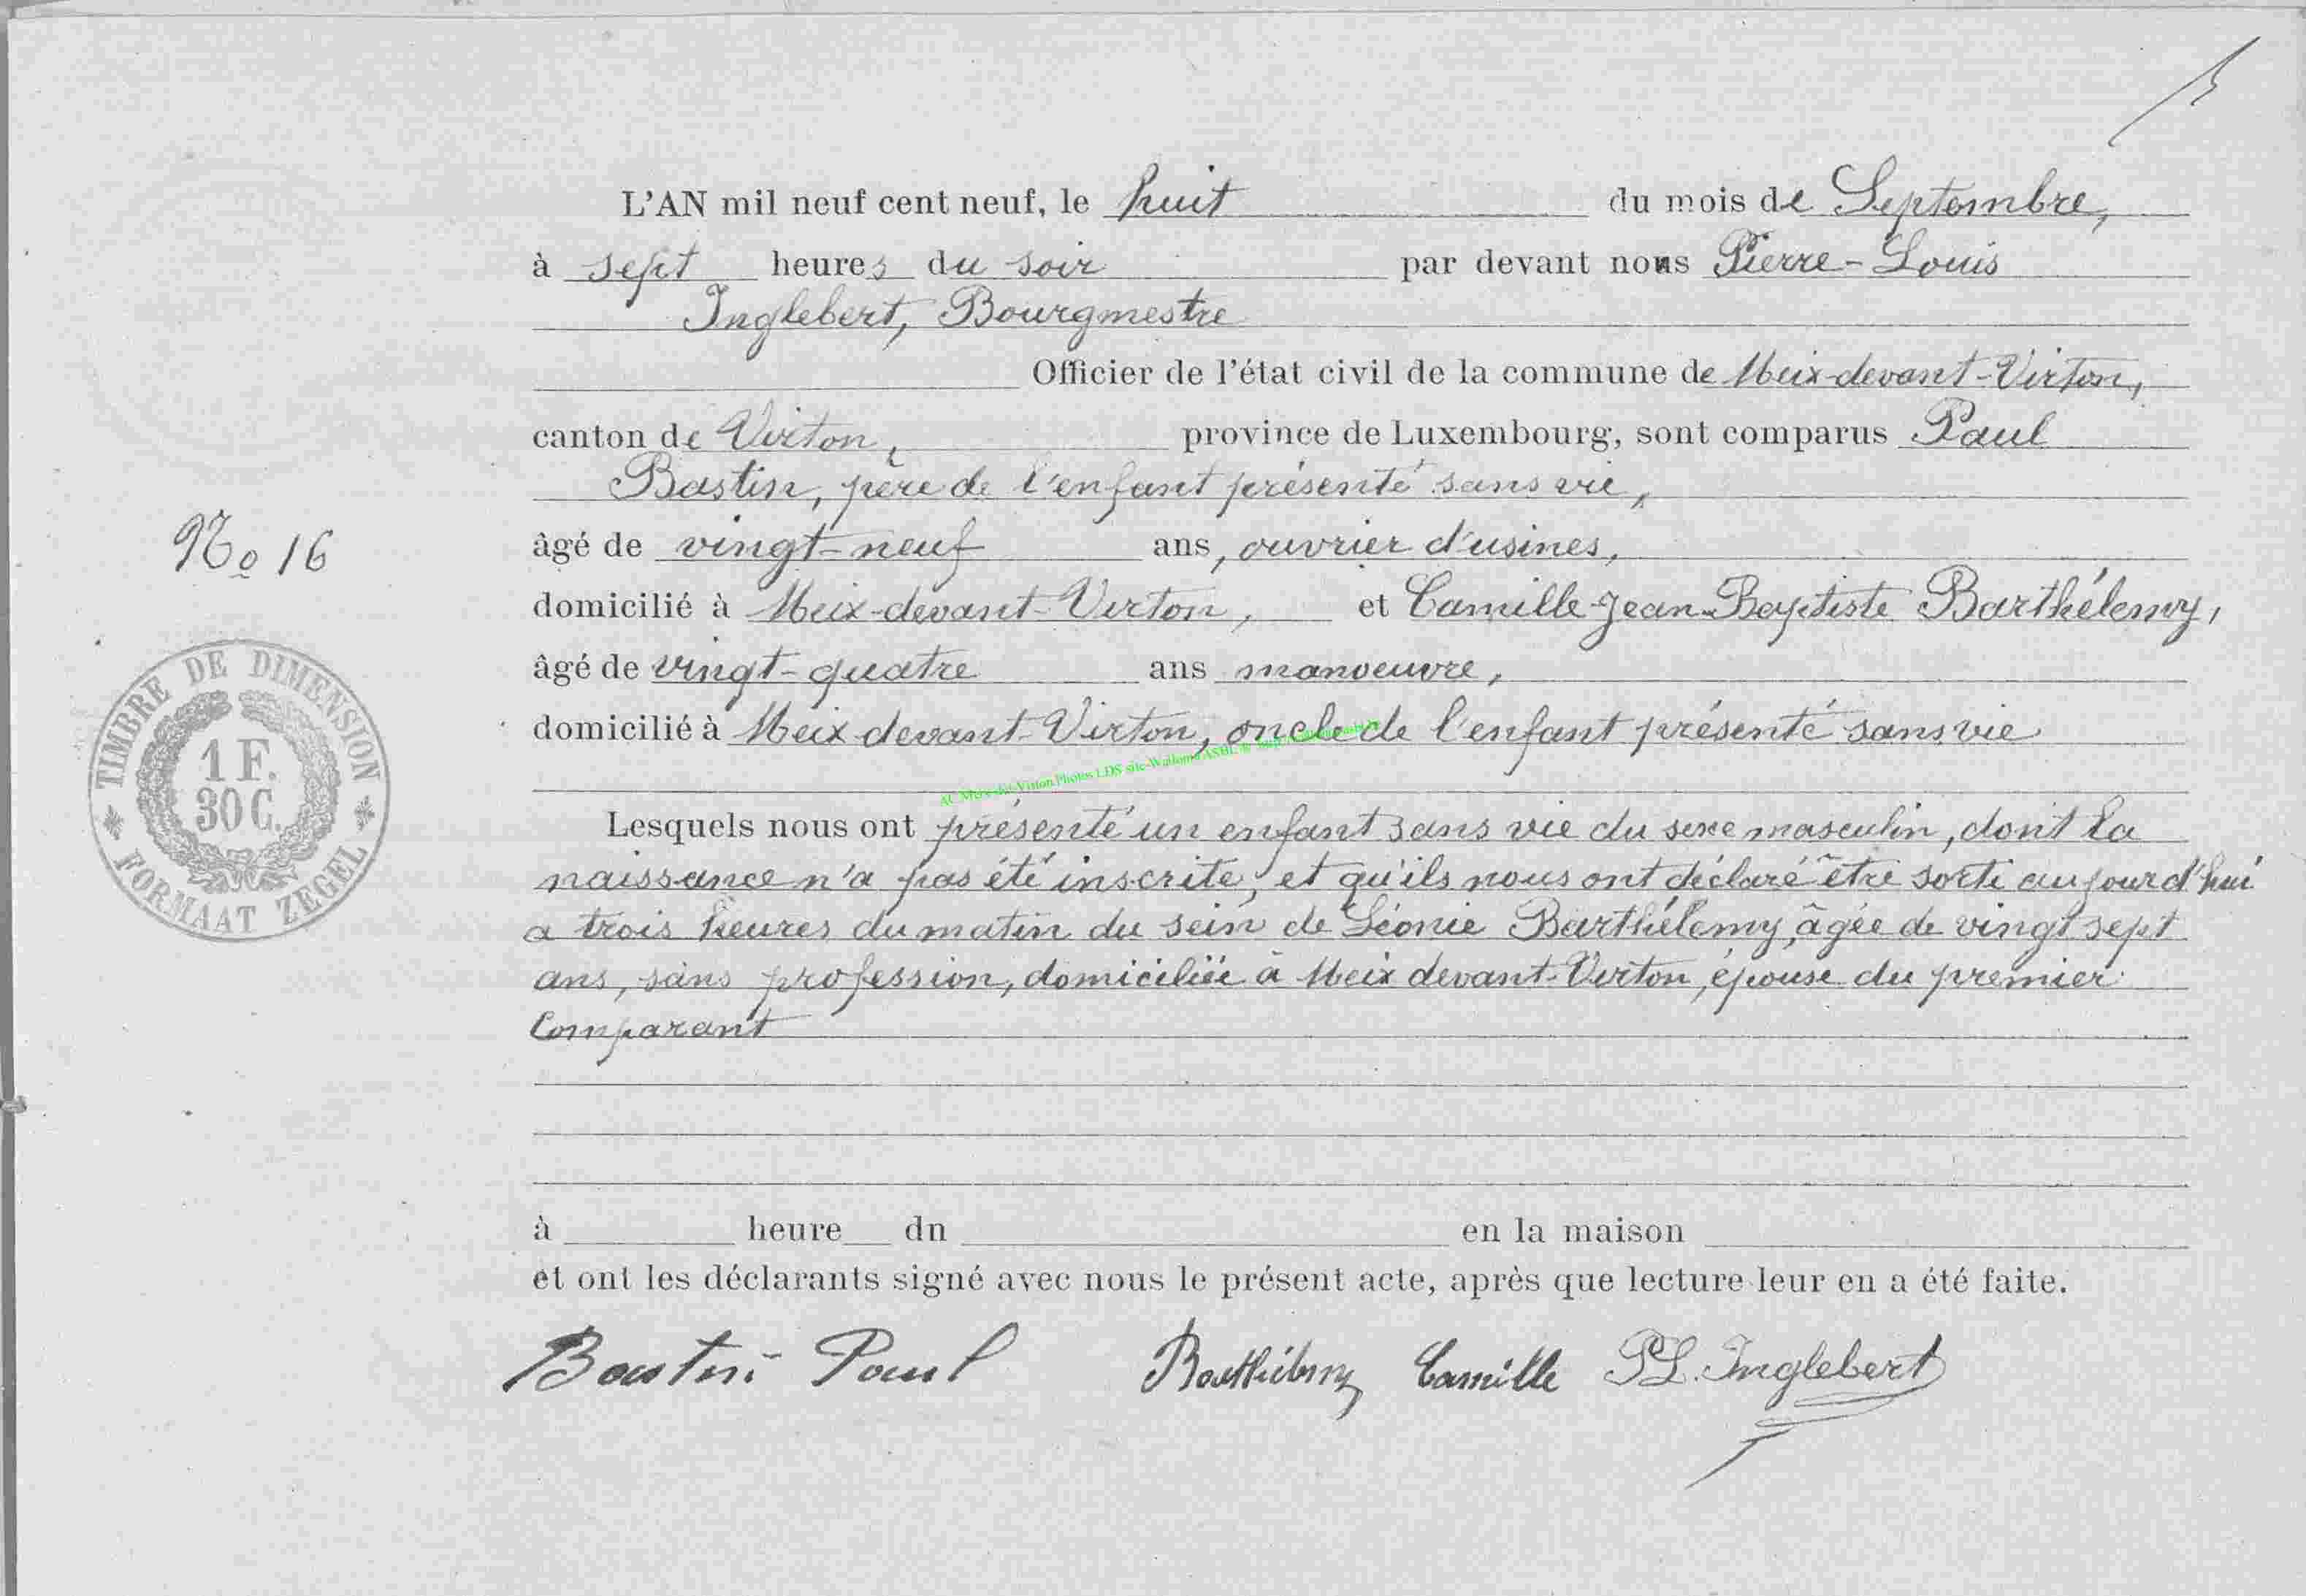 L'AN mil neuf cent neuf, le huit du mois de Septembre,
à sept heures du soir par devant nous Pierre-Louis
Inglebert, Bourgmestre
Officier de l'état civil de la commune de Meix-devant-Virton,
canton de Virton, province de Luxembourg, sont comparus Paul
Bastin, père de l'enfant présenté sans vie,
No 16
âgé de vingt-neuf ans, ouvrier d'usines,
domicilié à Meix-devant-Virton, et Camille-Jean-Baptiste Barthélemy,
âgé de vingt-quatre ans manoeuvre,
domicilié à Meix-devant-Virton, oncle de l'enfant présenté sans vie
TIMBRE DE DIMENSION
1 F.
30 C.
FORMAAT ZEGEL
Lesquels nous ont présenté un enfant sans vie du sexe masculin, dont la
naissance n'a pas été inscrite, et qu'ils nous ont déclaré être sorti aujourd'hui
a trois heures du matin du sein de Léonie Barthélemy, âgée de vingt sept
ans, sans profession, domiciliée à Meix devant-Virton, épouse du premier
Comparant
à heure dn en la maison
et ont les déclarants signé avec nous le présent acte, après que lecture leur en a été faite.
Bastin Paul Barthélemy Camille PL. Inglebert